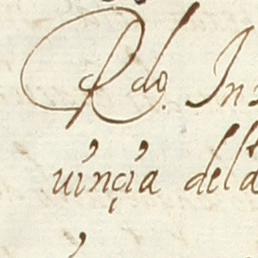 Rdo. In
uinçia dela